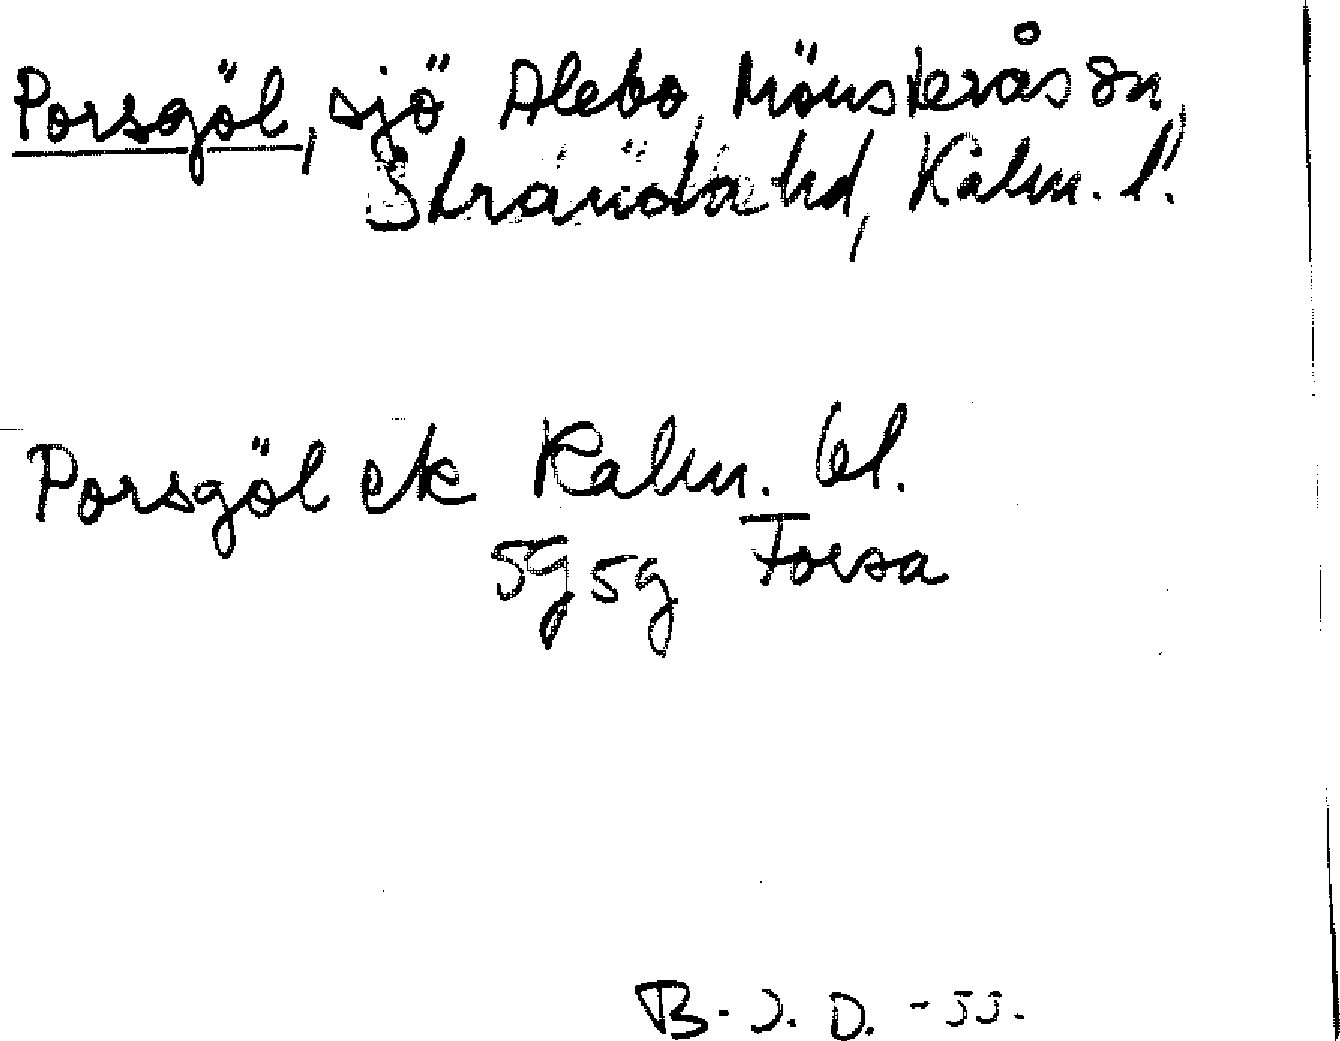 Porsgöl, sjö Alebo, Mönsterås sn,
Stranda hd, Kalm. l.
Porsgöl ek Kalm. bl.
5g5g Forsa
B. J. D. -55.